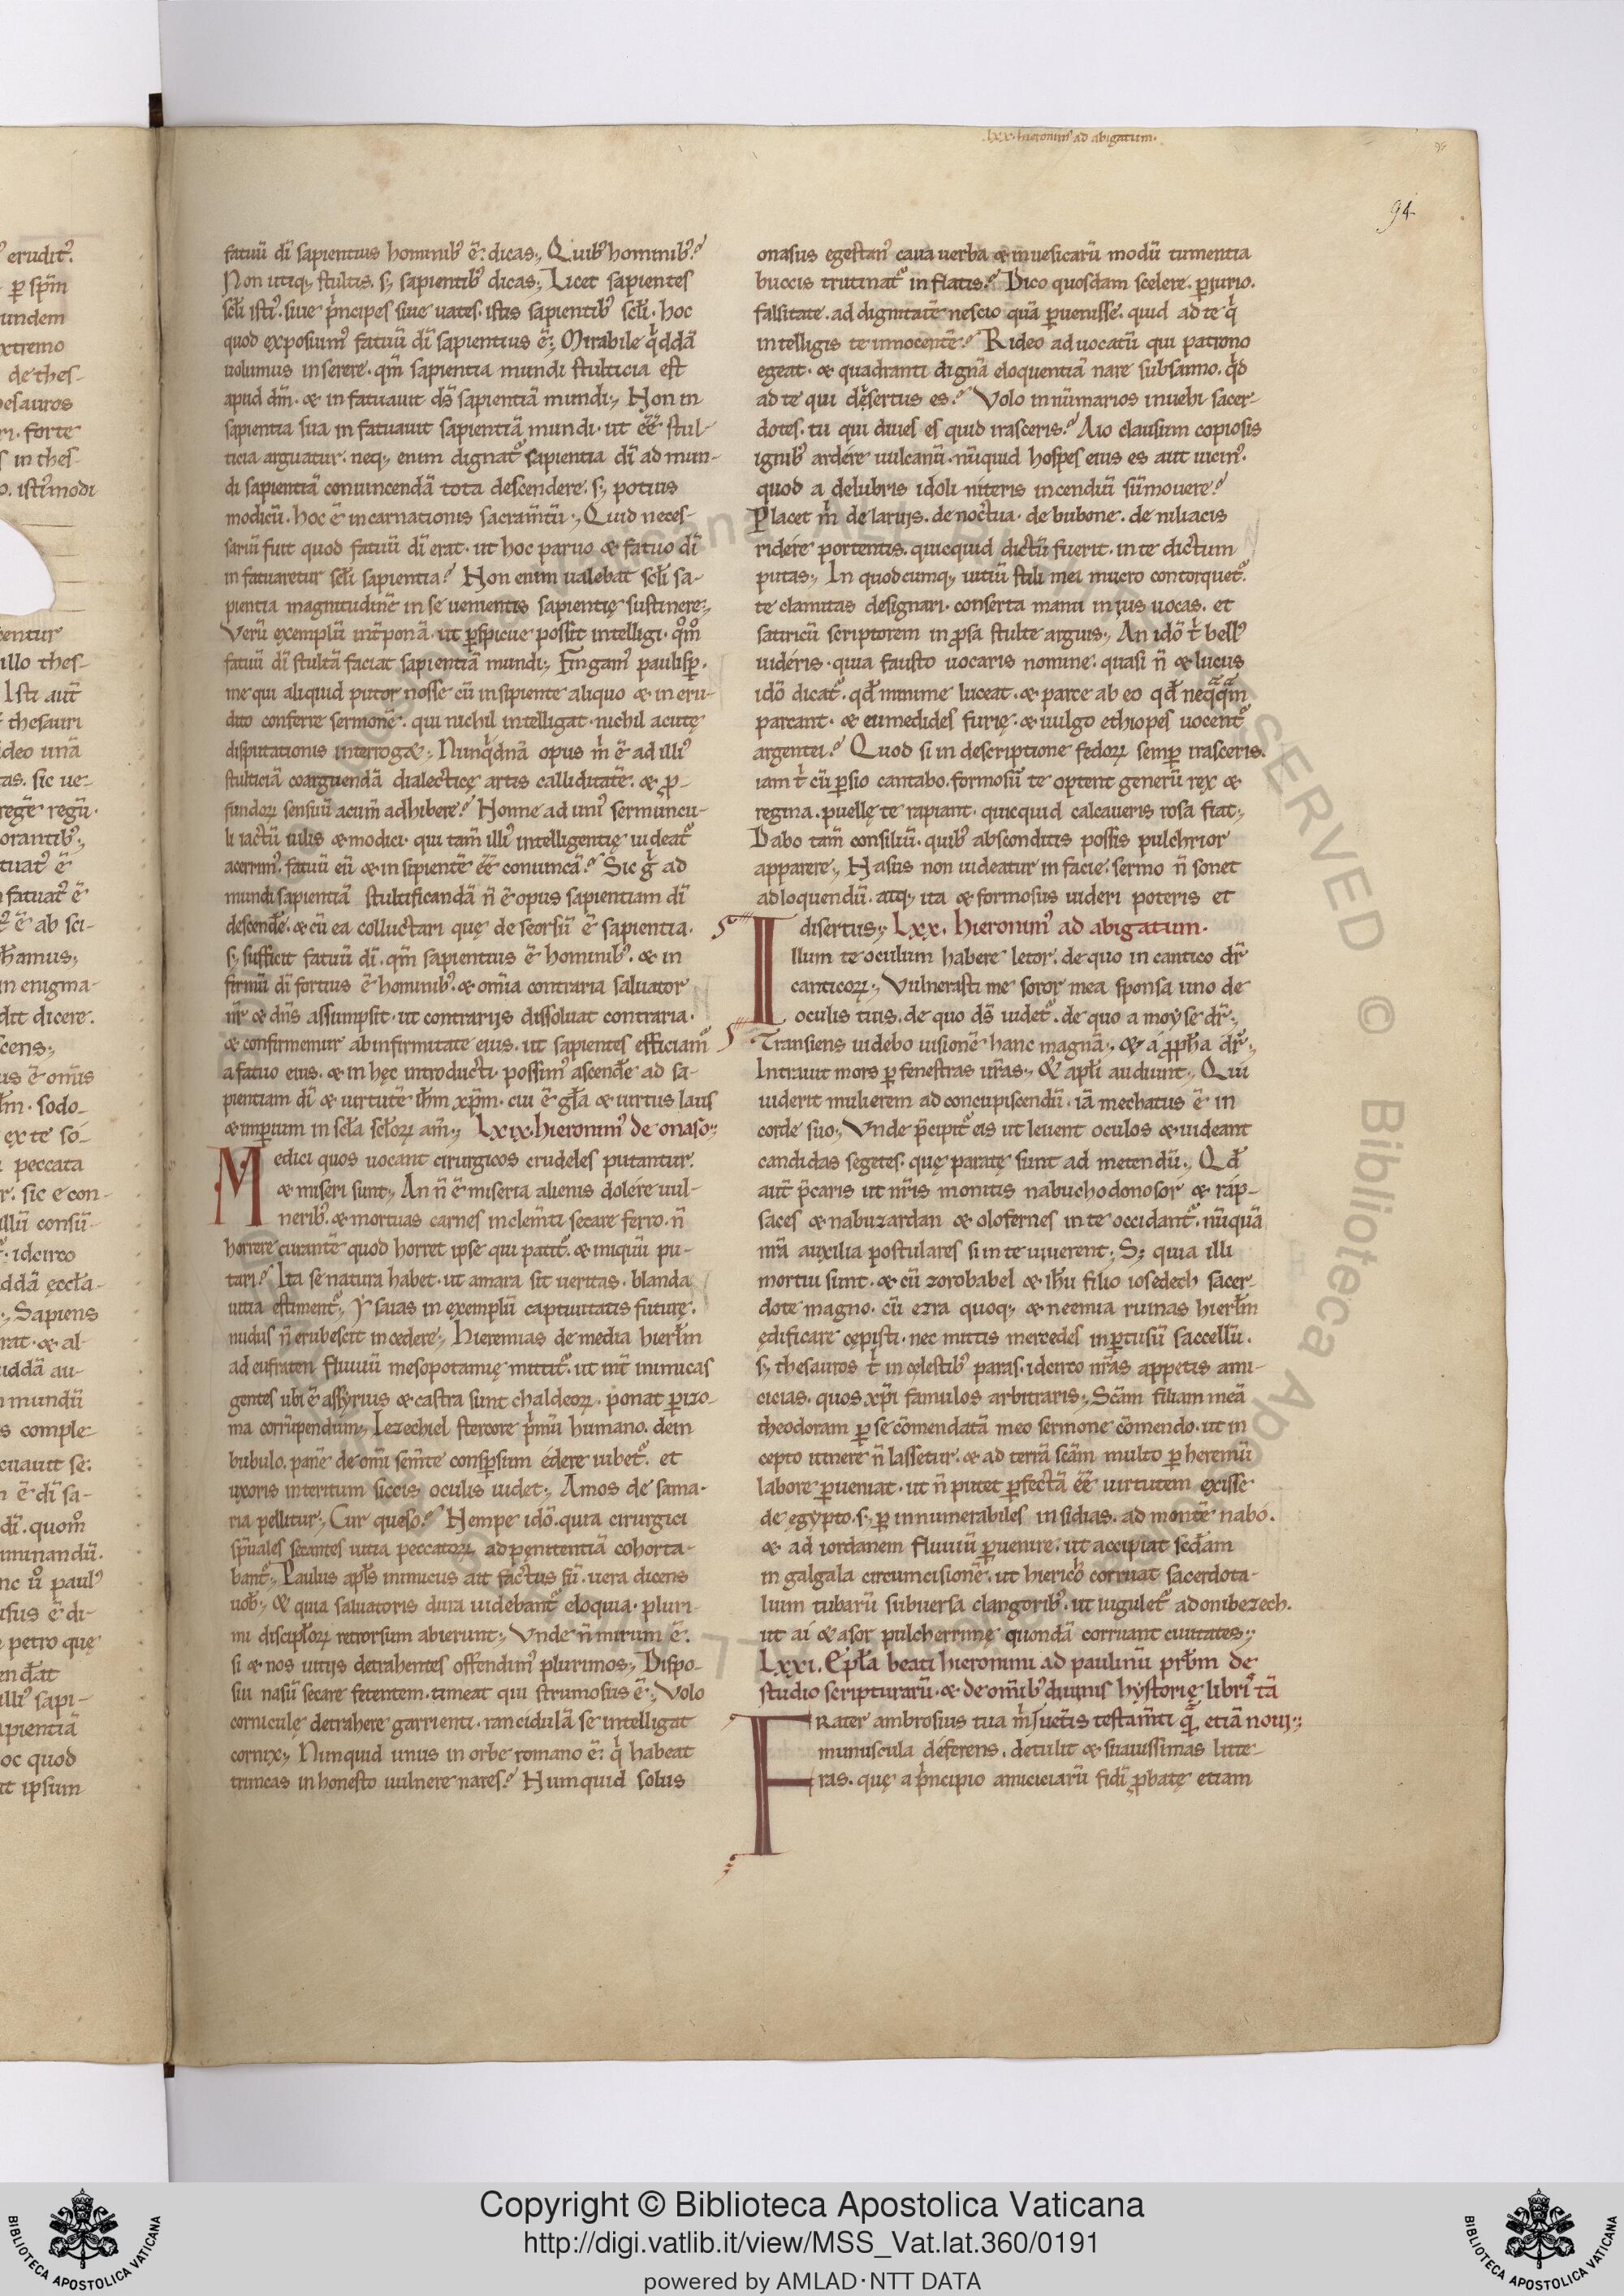 .lxx. hieronim᷒ ad abigatum.
94
fatuū dī sapientius hominib᷒ ē: dicas., Quib᷒ hominib᷒?
Non utiq, stultis. s, sapientib᷒ dicas., Licet sapientes
scłi isti᷒. siue p̍ncipes siue uates. istis sapientib᷒ scłi. hoc
quod exposuim᷒ fatuū dī sapientius ē., Mirabile q̍ddā
uolumus inserere. qm̄ sapientia mundi stulticia est
apud dm̄. & infatuauit ds̄ sapientiā mundi., Non in
sapientia sua infatuauit sapientiā mundi. ut eē̄ stul-
ticia arguatur. neq, enim dignat᷒ sapientia dī ad mun-
di sapientiā conuincendā tota descendere. s, potius
modicū. hoc ē incarnationis sacram̄tū., Quid neces-
sariū fuit quod fatuū dī erat. ut hoc paruo & fatuo dī
infatuaretur scłi sapientia? Non enim ualebat scłi sa-
pientia magnitudinē in se uenientis sapientię sustinere.,
Verū exemplū int̄ponā. ut p̱spicue possit intelligi. q̊m̊
fatuū dī stultā faciat sapientiā mundi., Fingam᷒ paulisp̱.
me qui aliquid putor nosse cū insipiente aliquo & ineru-
dito conferre sermonē. qui nichil intelligat. nichil acutę
disputationis interroget., Nunq̍dnā opus m̍ ē ad illi᷒
stulticiā coarguendā dialecticę artis calliditatē. & ꝓ-
fundoꝝ sensuū acum̄ adhibere? Nonne ad uni᷒ sermuncu-
li iactū uilis & modici. qui tam̄ illi᷒ intelligentię uideat᷒
acerrim᷒. fatuū eū & insipientē eē̄ conuincā? Sic g̍ ad
mundi sapientiā stultificandā n̄ ē opus sapientiam dī
descendē. & cū ea colluctari quę deseorsū ē sapientia.
s, sufficit fatuū dī. qm̄ sapientius ē hominib᷒. & in
firmū dī fortius ē hominib᷒. & om̄ia contraria saluator
nr̄ & dn̄s assumpsit. ut contrarijs dissoluat contraria.
& confirmemur ab infirmitate eius. ut sapientes efficiam᷒
a fatuo eius. & in hęc introducti. possim᷒ ascendē ad sa-
pientiam dī & uirtutē ihm̄ xp̄m. cui ē gła & uirtus laus
& imp̱ium in scła scłoꝝ am̄., Lxix. hieronim᷒ de onaso.,
Medici quos uocant cirurgicos crudeles putantur.
& miseri sunt., An n̄ ē miseria alienis dolére uul-
nerib᷒. & mortuas carnes inclem̄ti secare ferro. n̄
horrere curantē quod horret ipse qui patit᷒. & iniquū pu-
tari? Ita se natura habet. ut amara sit ueritas. blanda
uitia estiment᷒., Ysaias in exemplū captiuitatis futurę.
nudus n̄ erubescit incedere., Hieremias de media hierłm
ad eufraten fluuiū mesopotamię mittit᷒. ut int̄ inimicas
gentes ubi ē assyrius & castra sunt chaldeoꝝ. ponat p̱izo-
ma corrūpendum., Iezechiel stercore p̍mū humano. dein
bubulo. panē de om̄i sem̄te consp̱sum édere iubet᷒. et
uxoris interitum siccis oculis uidet., Amos de sama-
ria pellitur., Cur queso? Nempe idō. quia cirurgici
sp̄uales secantes uitia peccatoꝝ ad pęnitentiā cohorta-
bant᷒., Paulus apłs inimicus ait factus sū. uera dicens
uob., & quia saluatoris dura uidebant᷒ eloquia. pluri-
mi discipłoꝝ retrorsum abierunt., Vnde n̄ mirum ē.
si & nos uitijs detrahentes offendim᷒ plurimos., Dispo-
sui nasū secare fetentem. timeat qui strumosus ē., Volo
corniculę detrahere garrienti. rancidulā se intelligat
cornix., Nunquid unus in orbe romano ē. q̍ habeat
truncas inhonesto uulnere nares? Numquid solus
onasus egestan᷒ caua uerba & in uesicarū modū tumentia
buccis trutinat᷒ inflatis? Dico quosdam scelere. p̱iurio.
falsitate. ad dignitatē nescio quā p̱uenisse. quid ad te q̍
intelligis te innocentē? Rideo aduocatū qui patrono
egeat. & quadranti dignā eloquentiā nare subsanno. q̍d
ad te qui dęsertus es? Volo in nūmarios inuehi sacer-
dotes. tu qui diues es quid irasceris? Aio clausum copiosis
ignib᷒ ardére uulcanū. nūquid hospes eius es aut uicin᷒.
quod a delubris idoli niteris incendiū sūmouere?
Placet m̍ de laruis. de noctua. de bubone. de niliacis
ridére portentis. quicquid dictū fuerit. in te dictum
putas., In quodcumq, uitiū stili mei mucro contorquet᷒.
te clamitas designari. conserta manu in ius uocas. et
satiricū scriptorem in ꝓsa stulte arguis., An idō t̍ bell᷒
uidéris. quia fausto uocaris nomine. quasi n̄ & lucus
idō dicat᷒. qđ minime luceat. & parce ab eo qđ neq̄q̄m
parcant. & eumedides furię. & uulgo ethiopes uocent᷒
argentei? Quod si in descriptione fedoꝝ semp̱ irasceris.
iam t̍ cū p̱sio cantabo. formosū te optent generū rex &
regina. puellę te rapiant. quicquid calcaueris rosa fiat.,
Dabo tam̄ consiliū. quib᷒ absconditis possis pulchrior
apparere., Nasus non uideatur in facie. sermo n̄ sonet
ad loquendū. atq, ita & formosus uideri poteris et
disertus., Lxx. Hieronim᷒ ad abigatum.
Illum te oculum habere letor. de quo in cantico dr̄
canticoꝝ., Vulnerasti me soror mea sponsa uno de
oculis tuis. de quo ds̄ uidet᷒. de quo a moẏse dr̄.,
Transiens uidebo uisionē hanc magnā., & a ꝓpħa dr̄.,
Intrauit mors p̱ fenestras ur̄as., & apłi audiunt., Qui
uiderit mulierem ad concupiscendū. iā mechatus ē in
corde suo., Vnde p̄cipit᷒ eis ut leuent oculos & uideant
candidas segetes. quę paratę sunt ad metendū., Qđ
aut̄ p̄caris ut nr̄is monitis nabuchodonosor & rap-
saces & nabuzardan & olofernes in te occidant᷒. nūquā
nr̄a auxilia postulares si in te uiuerent., S; quia illi
mortui sunt. & cū zorobabel & ihū filio iosedech sacer-
dote magno. cū ezra quoq, & neemia ruinas hierłm
ędificare cępisti. nec mittis mercedes in p̱tusū saccellū.
s, thesauros t̍ in cęlestib᷒ paras. idcirco nr̄as appetis ami-
cicias. quos xp̄i famulos arbitraris., Scām filiam meā
theodoram p̱ se cōmendatā meo sermone cōmendo. ut in
cepto itinere n̄ lassetur. & ad terrā scām multo p̱ heremū
labore p̱ueniat. ut n̄ putet p̱fectā eē̄ uirtutem exisse
de ęgypto. s, p̱ innumerabiles insidias. ad montē nabó.
& ad iordanem fluuiū p̱uenire. ut accipiat scđam
in galgala circumcisionē. ut hierico corruat sacerdota-
lium tubarū subuersa clangorib᷒. ut iugulet᷒ adonibezech.
ut ai & asor pulcherrimę quondā corruant ciuitates.,
Lxxi. Epła beati hieronimi ad paulinū prb̄m de
studio scripturarū. & de om̄ib᷒ diuinis hystorię libri᷒ tā
Frater ambrosius tua m̍ uetīs testam̄ti q̄ etiā noui.,
munuscula déferens. detulit & suauissimas litte-
ras. quę a p̍ncipio amiciciarū fidī ꝓbatę etiam
Copyright © Biblioteca Apostolica Vaticana
http://digi.vatlib.it/view/MSS_Vat.lat.360/0191
powered by AMLAD·NTT DATA